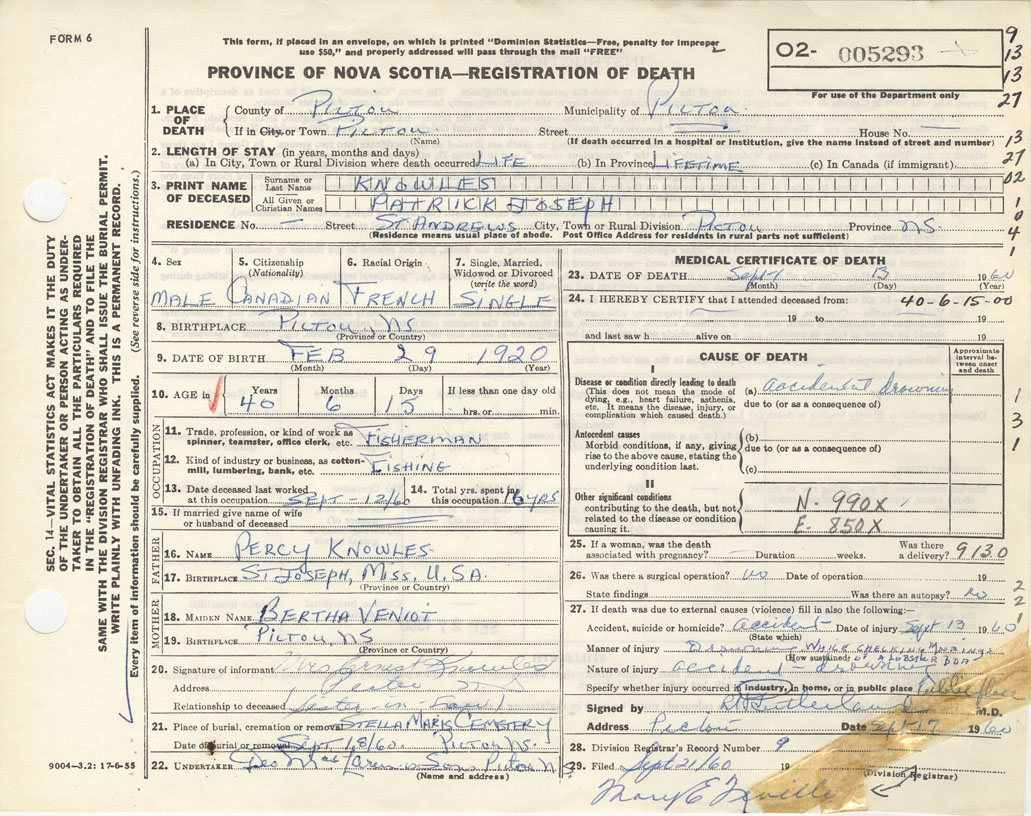 FORM 6
This form, if placed in an envelope, on which is printed "Dominion Statistics—Free, penalty for improper
use $50," and properly addressed will pass through the mail "FREE"
PROVINCE OF NOVA SCOTIA—REGISTRATION OF DEATH
O2- 005293
For use of the Department only
9
13
13
27
1. PLACE OF DEATH
County of PICTOU Municipality of PICTOU
If in City or Town PICTOU Street House No. —
(Name) (If death occurred in a hospital or institution, give the name instead of street and number)
13
27
2. LENGTH OF STAY (in years, months and days)
(a) In City, Town or Rural Division where death occurred LIFE (b) In Province LIFETIME (c) In Canada (if immigrant)
3. PRINT NAME OF DECEASED
Surname or Last Name KNOWLES
All Given or Christian Names PATRICK JOSEPH
02
1
0
4
1
RESIDENCE No. — Street ST ANDREWS City, Town or Rural Division PICTOU Province NS
(Residence means usual place of abode. Post Office Address for residents in rural parts not sufficient)
SEC. 14—VITAL STATISTICS ACT MAKES IT THE DUTY
OF THE UNDERTAKER OR PERSON ACTING AS UNDER-
TAKER TO OBTAIN ALL THE PARTICULARS REQUIRED
IN THE "REGISTRATION OF DEATH" AND TO FILE THE
SAME WITH THE DIVISION REGISTRAR WHO SHALL ISSUE THE BURIAL PERMIT.
WRITE PLAINLY WITH UNFADING INK. THIS IS A PERMANENT RECORD.
Every item of information should be carefully supplied. (See reverse side for instructions.)
4. Sex 5. Citizenship (Nationality) 6. Racial Origin 7. Single, Married, Widowed or Divorced (write the word)
MALE CANADIAN FRENCH SINGLE
8. BIRTHPLACE PICTOU, NS
(Province or Country)
9. DATE OF BIRTH FEB 29 1920
(Month) (Day) (Year)
10. AGE in Years Months Days If less than one day old
40 6 15 hrs. or min.
OCCUPATION
11. Trade, profession, or kind of work as
spinner, teamster, office clerk, etc. FISHERMAN
12. Kind of industry or business, as cotton-
mill, lumbering, bank, etc. FISHING
13. Date deceased last worked at this occupation SEPT-12/60 14. Total yrs. spent in this occupation 16 YRS
15. If married give name of wife
or husband of deceased
FATHER
16. NAME PERCY KNOWLES
17. BIRTHPLACE ST JOSEPH, MISS. U.S.A.
(Province or Country)
MOTHER
18. MAIDEN NAME BERTHA VENIOT
19. BIRTHPLACE PICTOU NS
(Province or Country)
20. Signature of informant Mrs Ernest Knowles
Address
Relationship to deceased Sister-in-law
21. Place of burial, cremation or removal STELLA MARIS CEMETERY
Date of burial or removal Sept. /18/60. Pictou NS.
22. UNDERTAKER Geo. Sons Pictou NS
(Name and address)
9004—3.2: 17-6-55
MEDICAL CERTIFICATE OF DEATH
23. DATE OF DEATH Sept 13 1960
(Month) (Day) (Year)
24. I HEREBY CERTIFY that I attended deceased from: 40-6-15-00
19 to 19
and last saw h alive on 19
CAUSE OF DEATH Approximate interval between onset and death
I
Disease or condition directly leading to death
(This does not mean the mode
of dying, e.g., heart failure, asthenia,
etc. It means the disease, injury, or
complication which caused death.)
(a) accidental drowning
due to (or as a consequence of)
Antecedent causes
Morbid conditions, if any, giving
rise to the above cause, stating the
underlying condition last.
(b)
due to (or as a consequence of)
(c)
1
3
1
II
Other significant conditions
contributing to the death, but not
related to the disease or condition
causing it.
N. 990X
E. 850X
25. If a woman, was the death
associated with pregnancy? Duration weeks. Was there a delivery? 9130
26. Was there a surgical operation? no Date of operation 19
State findings Was there an autopsy? no
27. If death was due to external causes (violence) fill in also the following:—
2
2
1
Accident, suicide or homicide? accident Date of injury Sept 13 1960
(State which)
Manner of injury Drown WHILE CHECKING MOORINGS
(How sustained) OF A LOBSTER BOAT
Nature of injury accident - drowning
Specify whether injury occurred in industry, in home, or in public place Public place
Signed by Sutherland M.D.
Address Pictou Date Sept 17 1960
28. Division Registrar's Record Number 9
29. Filed Sept 21/60 19
(Division Registrar)
Mary E